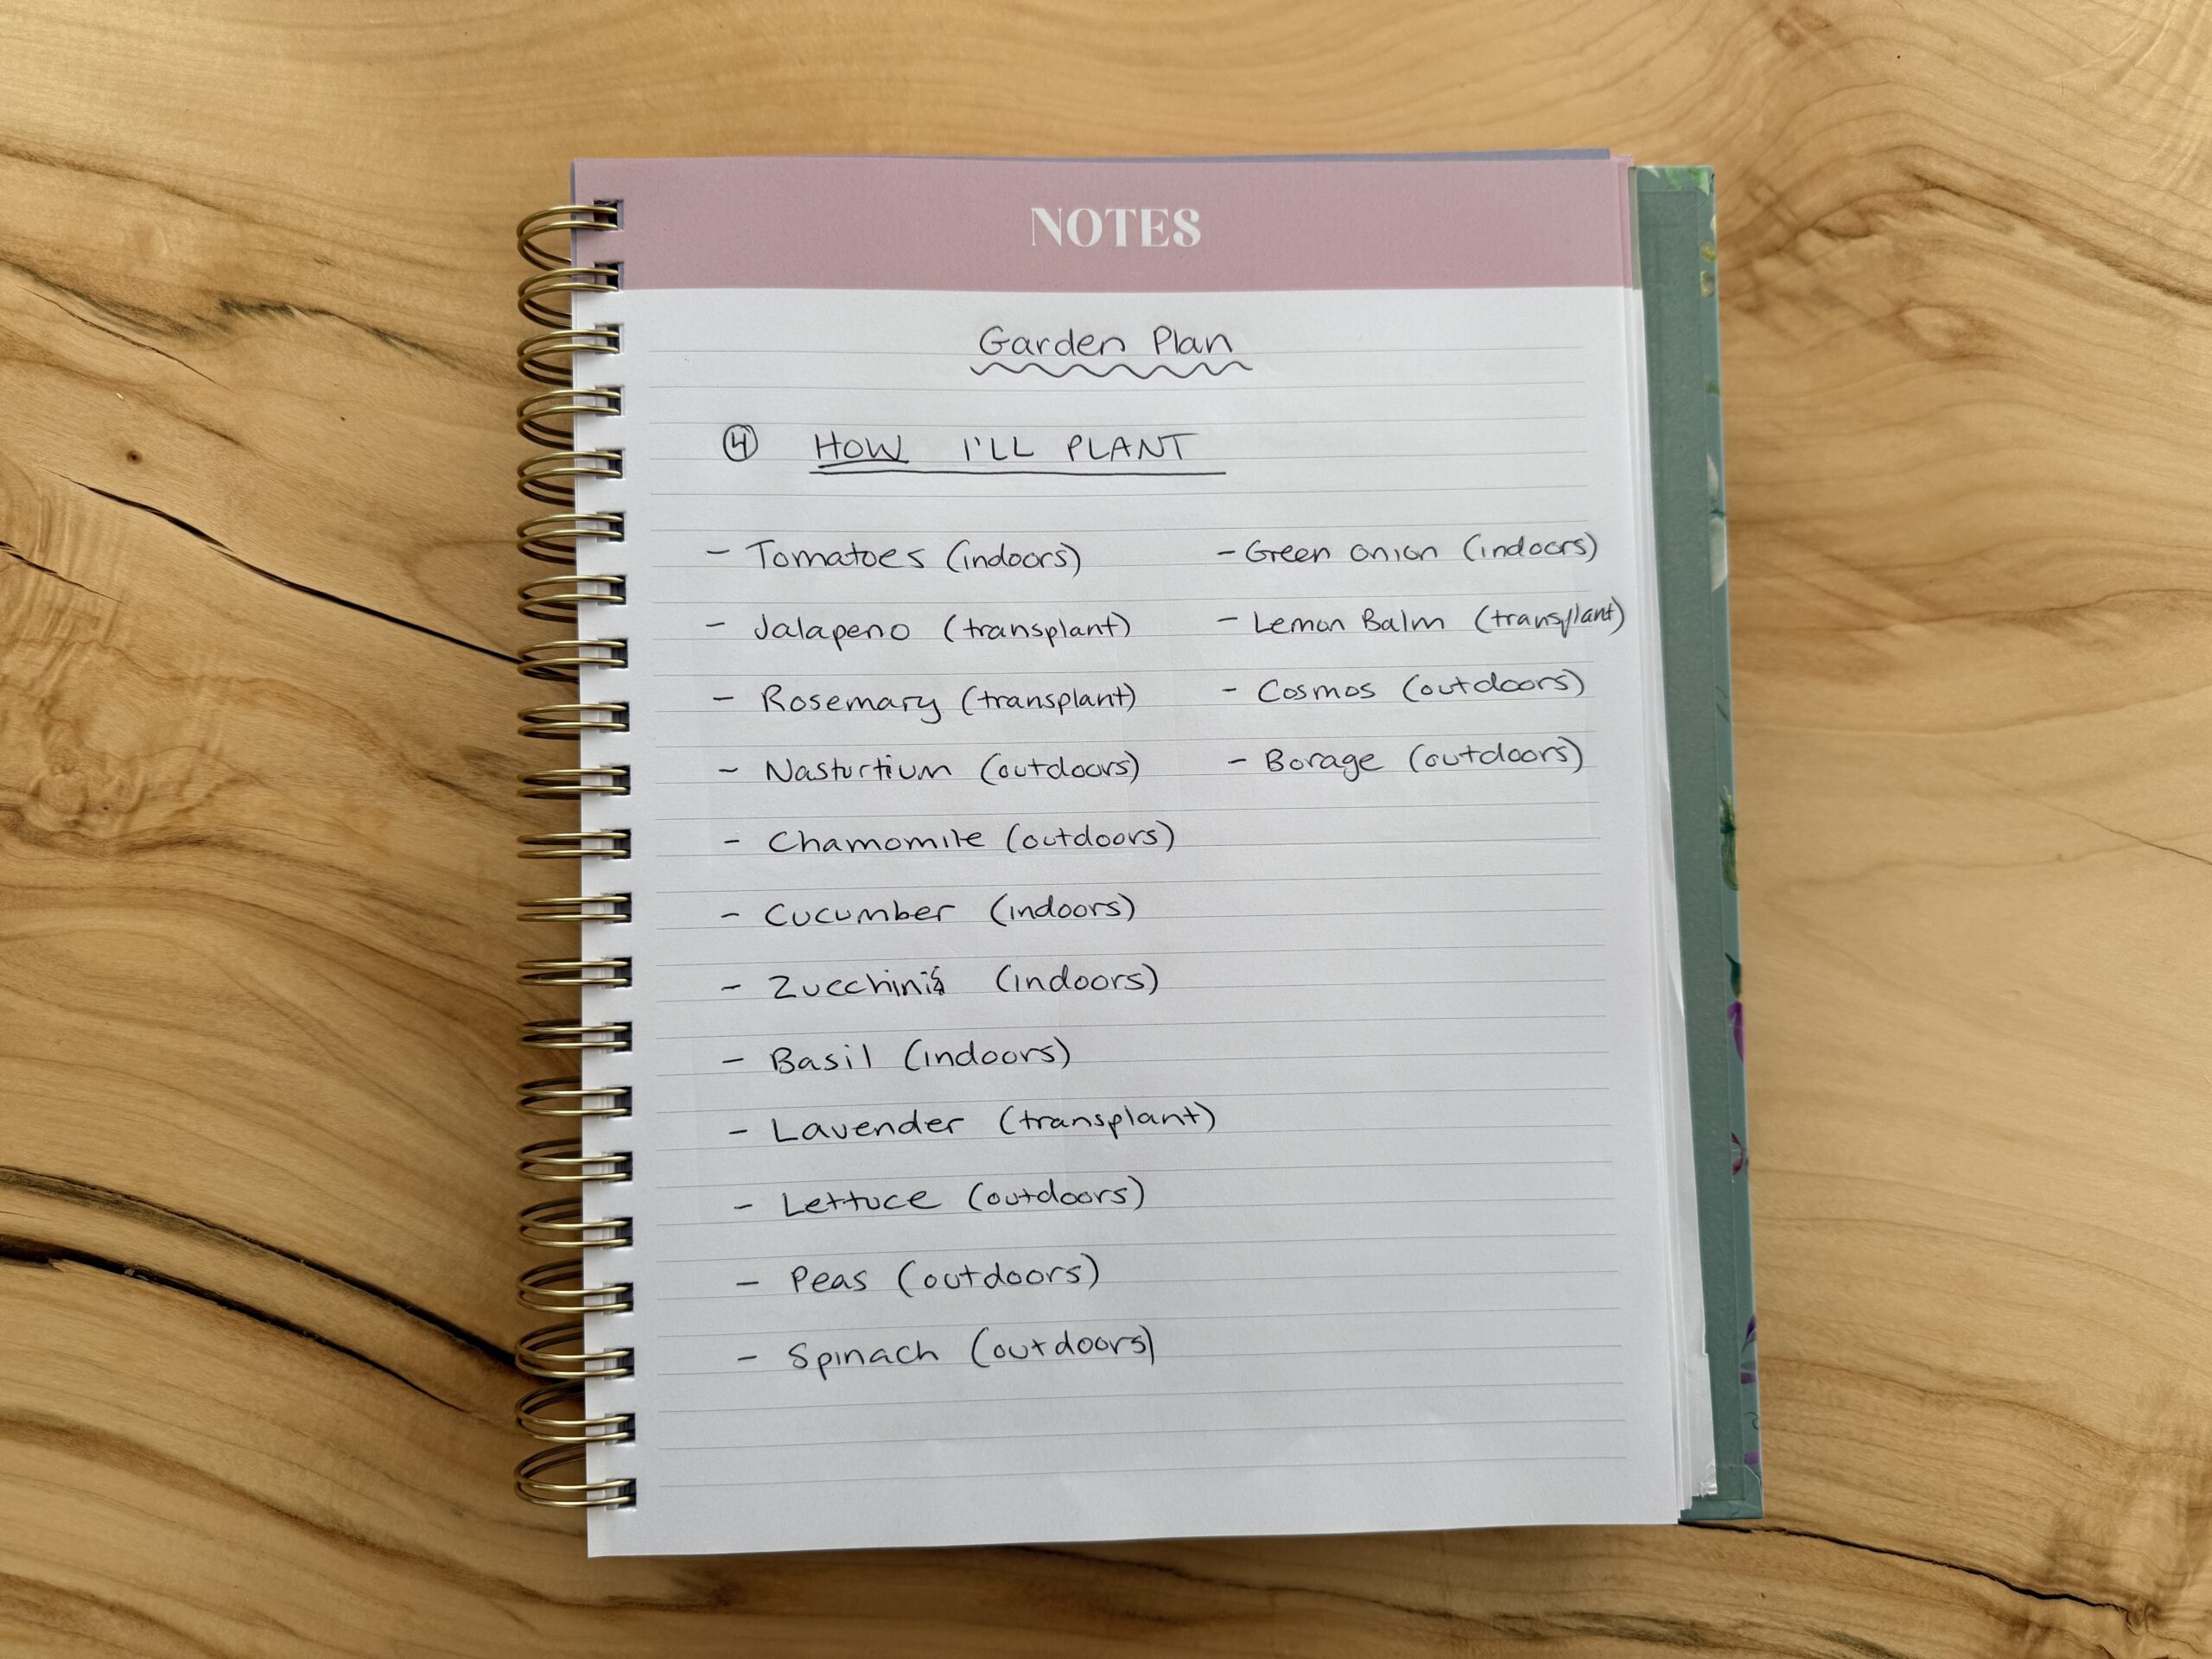 NOTES
Garden Plan
④ HOW I'LL PLANT
- Tomatoes (indoors)
- Jalapeno (transplant)
- Rosemary (transplant)
- Nasturtium (outdoors)
- Chamomile (outdoors)
- Cucumber (indoors)
- Zucchini (indoors)
- Basil (indoors)
- Lavender (transplant)
- Lettuce (outdoors)
- Peas (outdoors)
- Spinach (outdoors)
- Green onion (indoors)
- Lemon Balm (transplant)
- Cosmos (outdoors)
- Borage (outdoors)